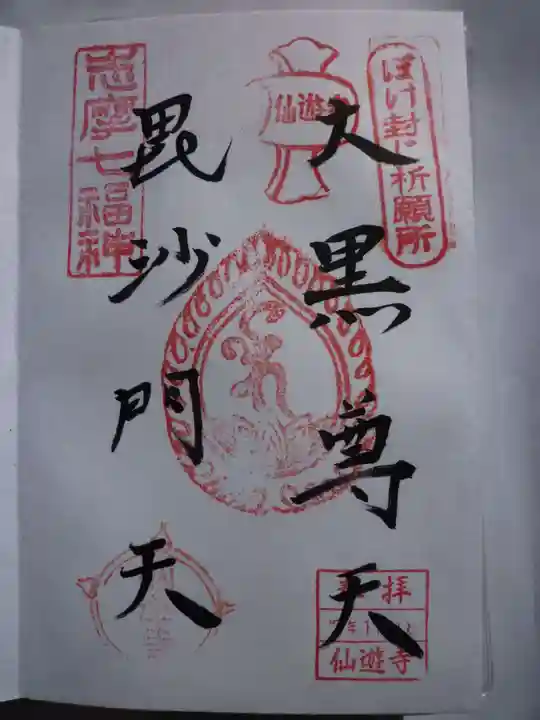 ぼけ封じ祈願所
仙遊寺
大黒尊天
拝
仙遊寺
毘沙門天
志摩七福神